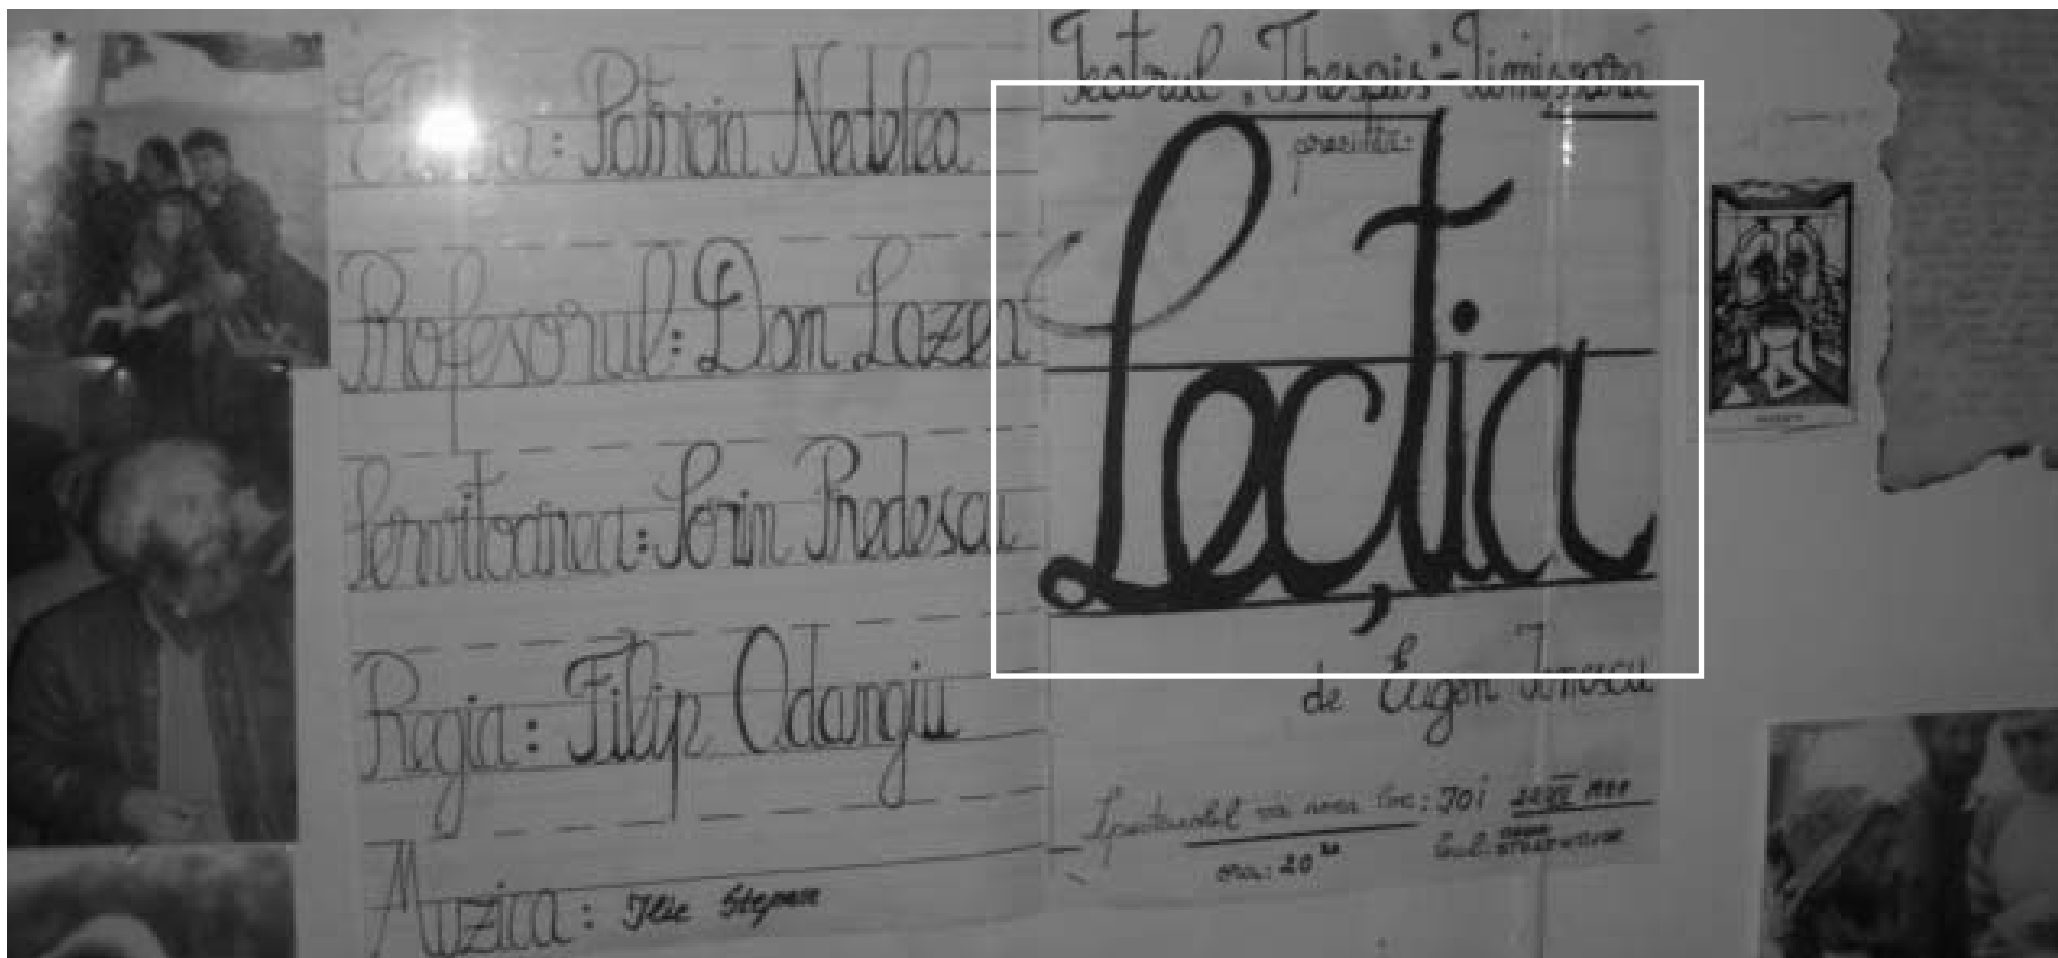 Eleva: Patricia Nedelea
Profesorul: Dan Lazea
Servitoarea: Sorin Predescu
Regia: Filip Odangiu
Muzica: Ilie Stepan
Teatrul „Thespis”-Timişoara
prezintă:
Lecţia
de Eugen Ionescu
Spectacolul va avea loc: JOI
ora: 20